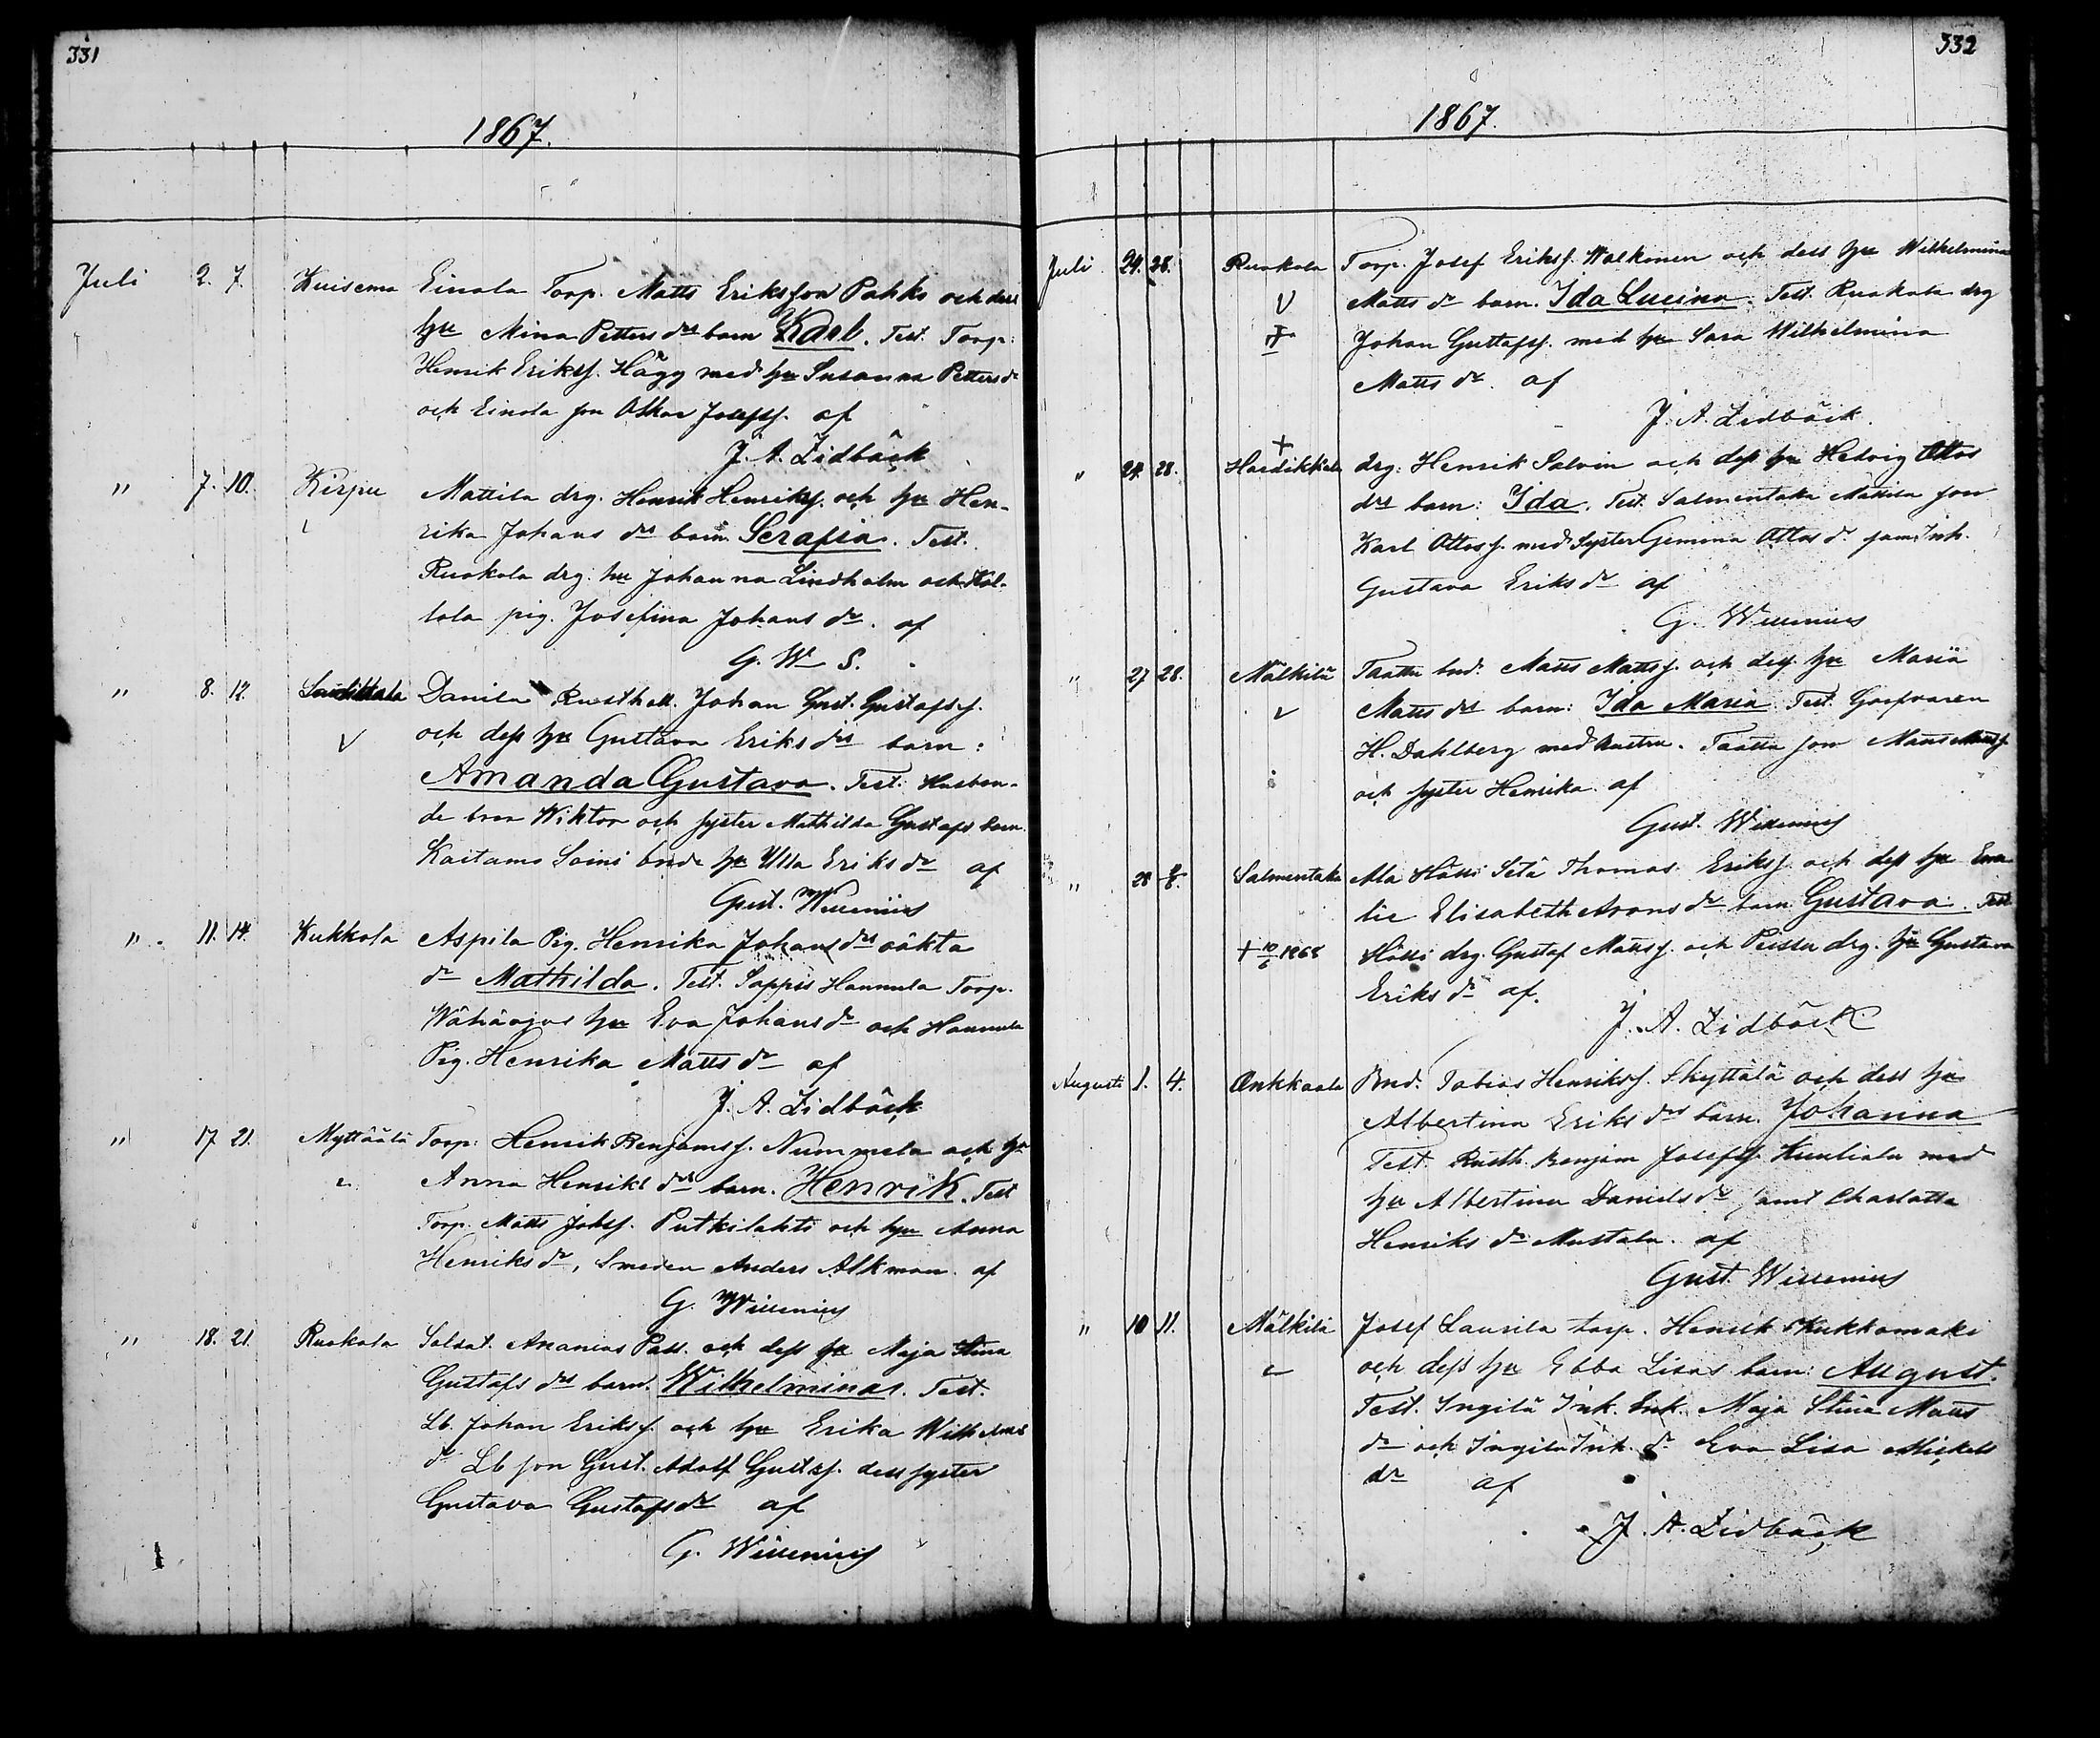 331
1867.
Juli 2. 7. Kuisema Einola Torp. Matts Eriksson Pakks och dess
hu Mina Petters drs barn Karl. Test. Torp:
Henrik Eriksf. Hägg med hu Susanna Petters dr
och Einola son Oskar Josefsf. af
J. A. Lidbäck
" 7. 10. Kirpu Mattila drg. Henrik Henriksf. och hu Hen-
rika Johans drs barn. Serafia. Test.
Ruokola drg. hu Johanna Lindholm och Köl-
lola pig. Josefina Johans dr. af
G. W S.
" 8. 12. Danila Rusthåll. Johan Gust. Gustafsf.
och dess hu Gustava Eriks drs barn:
Amanda Gustava. Test: Husbon-
de bror Wiktor och syster Mathilda Gustafs barn.
Kaitamo Soini bnde hu Ulla Eriks dr af
Gust. Willenius
" 11. 14. Kukkola Aspila Pig. Henrika Johans drs oäkta
dr Mathilda. Test. Sappis Hannula Torp.
hu Eva Johans dr och Hannula
Pig. Henrika Matts dr af
J. A. Lidbäck
" 17 21. Myttäälä Torp: Henrik Benjamsf. Nummela och hu
Anna Henriks drs barn. Henrik. Test
Torp. Matts Jobsf. Putkilahti och hu Anna
Henriks dr, Smeden Anders Alkman af
G. Willenius
" 18. 21. Ruokola Soldat. Ananias Pass. och dess hu Maja Stina
Gustafs drs barn. Wilhelmina. Test.
Lb. Johan Eriksf. och hu Erika Wilhelms
dr Lb son Gust. Adolf Gustsf. dess syster
Gustava Gustafs dr af
G. Willenius
332
1867.
Juli 24. 28. Ruokola Torp. Josef Eriksf. Walkonen och dess hu Wilhelmina
Matts dr barn. Ida Lucina. Test. Ruokola drg
Johan Gustafsf. med hu Sara Wilhelmina
Matts dr. af
J. A. Lidbäck.
" 24. 28. Hardikkala drg: Henrik Salvin och dess hu Hedvig Ottos
drs barn: Ida. Test. Salmentaka Mattila son
Karl Ottosf. med Syster Gemina Ottos dr samt Inh.
Gustava Eriks dr af
G. Willenius
" 27 28. Mälkilä Taatta bnd. Matts Mattsf. och dess hu Maria
Matts drs barn: Ida Maria. Test.
H. Dahlberg med hustru. Taatta son
och syster Henrika. af
Gust. Willenius
" 28 Salmentaka Ala Hötti Seta Thomas Eriksf. och dess hu Ema-
lie Elisabeth Arons dr barn. Gustava. Test.
+ 10/6 1868 Hötti drg. Gustaf Mattsf. och Peissu drg. hu Gustava
Eriks dr af.
J. A. Lidbäck
Augusti 1. 4. Onkkaala Bnd. Tobias Henriksf. Skyttälä och dess hu
Albertina Eriks drs barn. Johanna
Test. Rusth. Benjam Josefsf. Kuuliala med
hu Albertina Daniels dr samt Charlotta
Henriks dr Mustala. af
Gust. Willenius
" 10 11. Mälkilä Josef Laurila torp. Henrik Kukkomäki
och dess hu Ebba Lisas barn: August.
Test. Ingilä Inh. Enk. Maja Stina Matts
dr och Ingilä Inh. dr Eva Lisa Mickels
dr af
J. A. Lidbäck